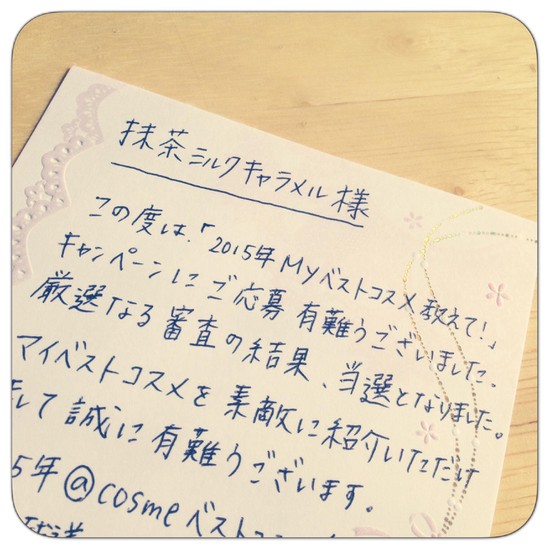 抹茶ミルクキャラメル様
この度は、「2015年Myベストコスメ教えて!」
キャンペーンにご応募有難うございました。
厳選なる審査の結果、当選となりました。
マイベストコスメを素敵に紹介いただけ
して誠に有難うございます。
5年@cosmeベストコス